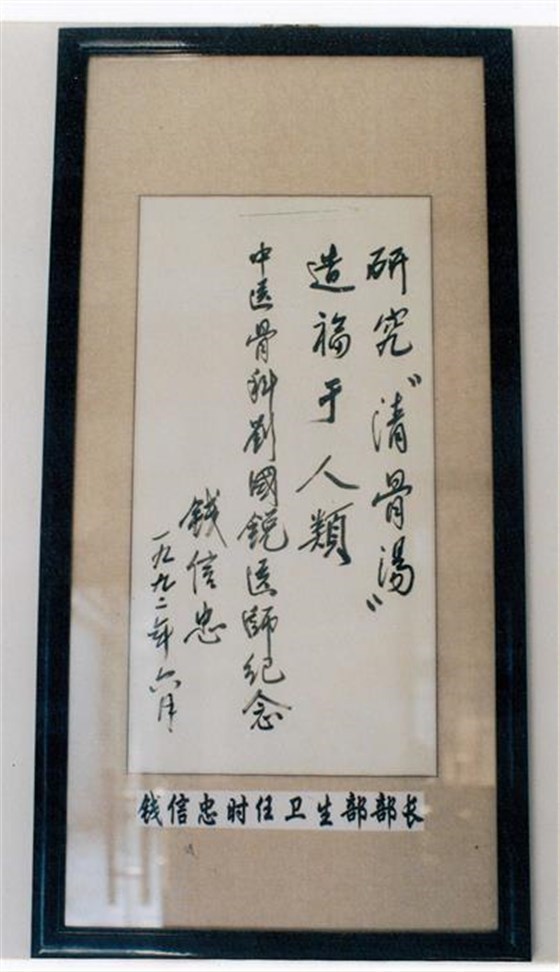 研究"清骨湯"
造福于人類
中医骨科劉國銳医師纪念
錢信忠
一九九二年六月
钱信忠时任卫生部部长